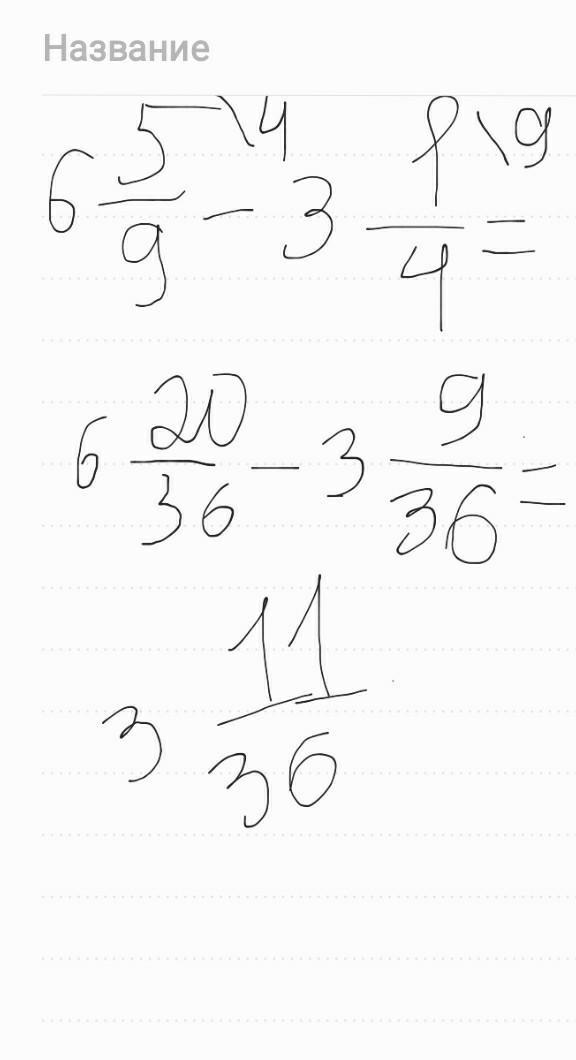 Название
6 5/9 \4 - 3 1/4 \9 =
6 20/36 - 3 9/36 =
3 11/36